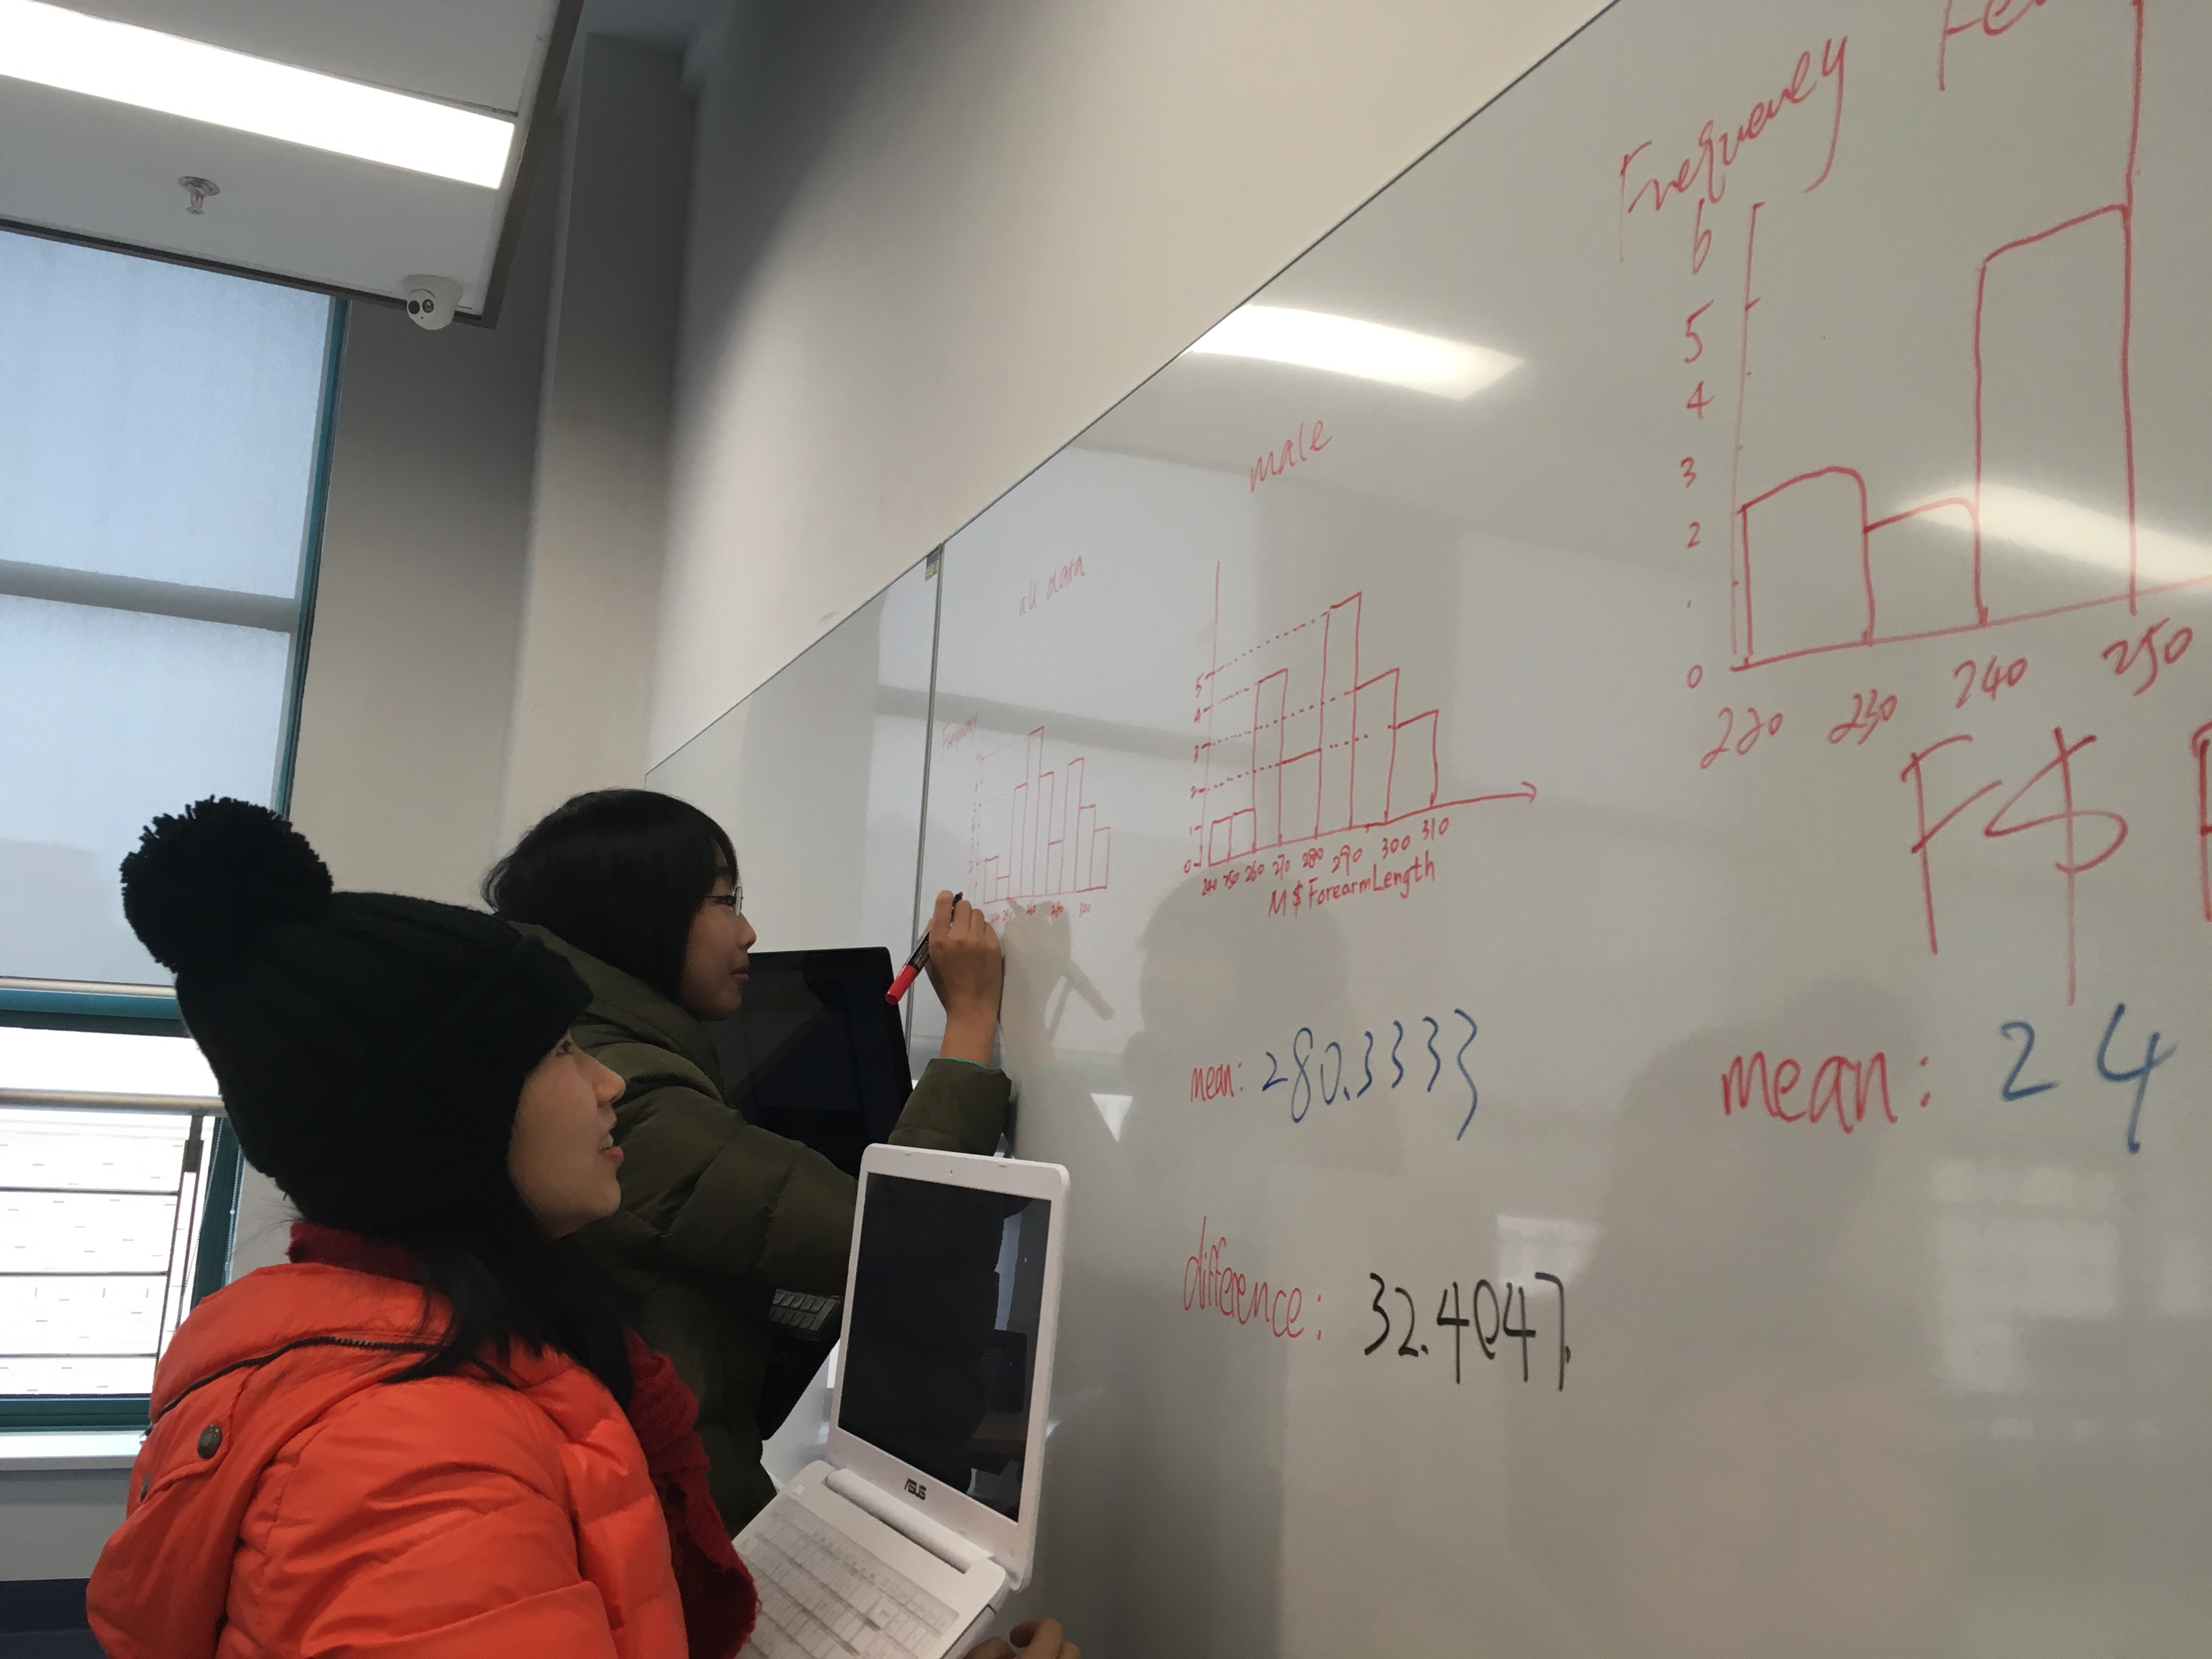 all data
Frequency
male
5
4
3
2
1
0
240 250 260 270 280 290 300 310
M$ForearmLength
mean: 280.3333
difference: 32.4047
Frequency
6
5
4
3
2
0
220 230 240 250
F$
mean: 24
ASUS